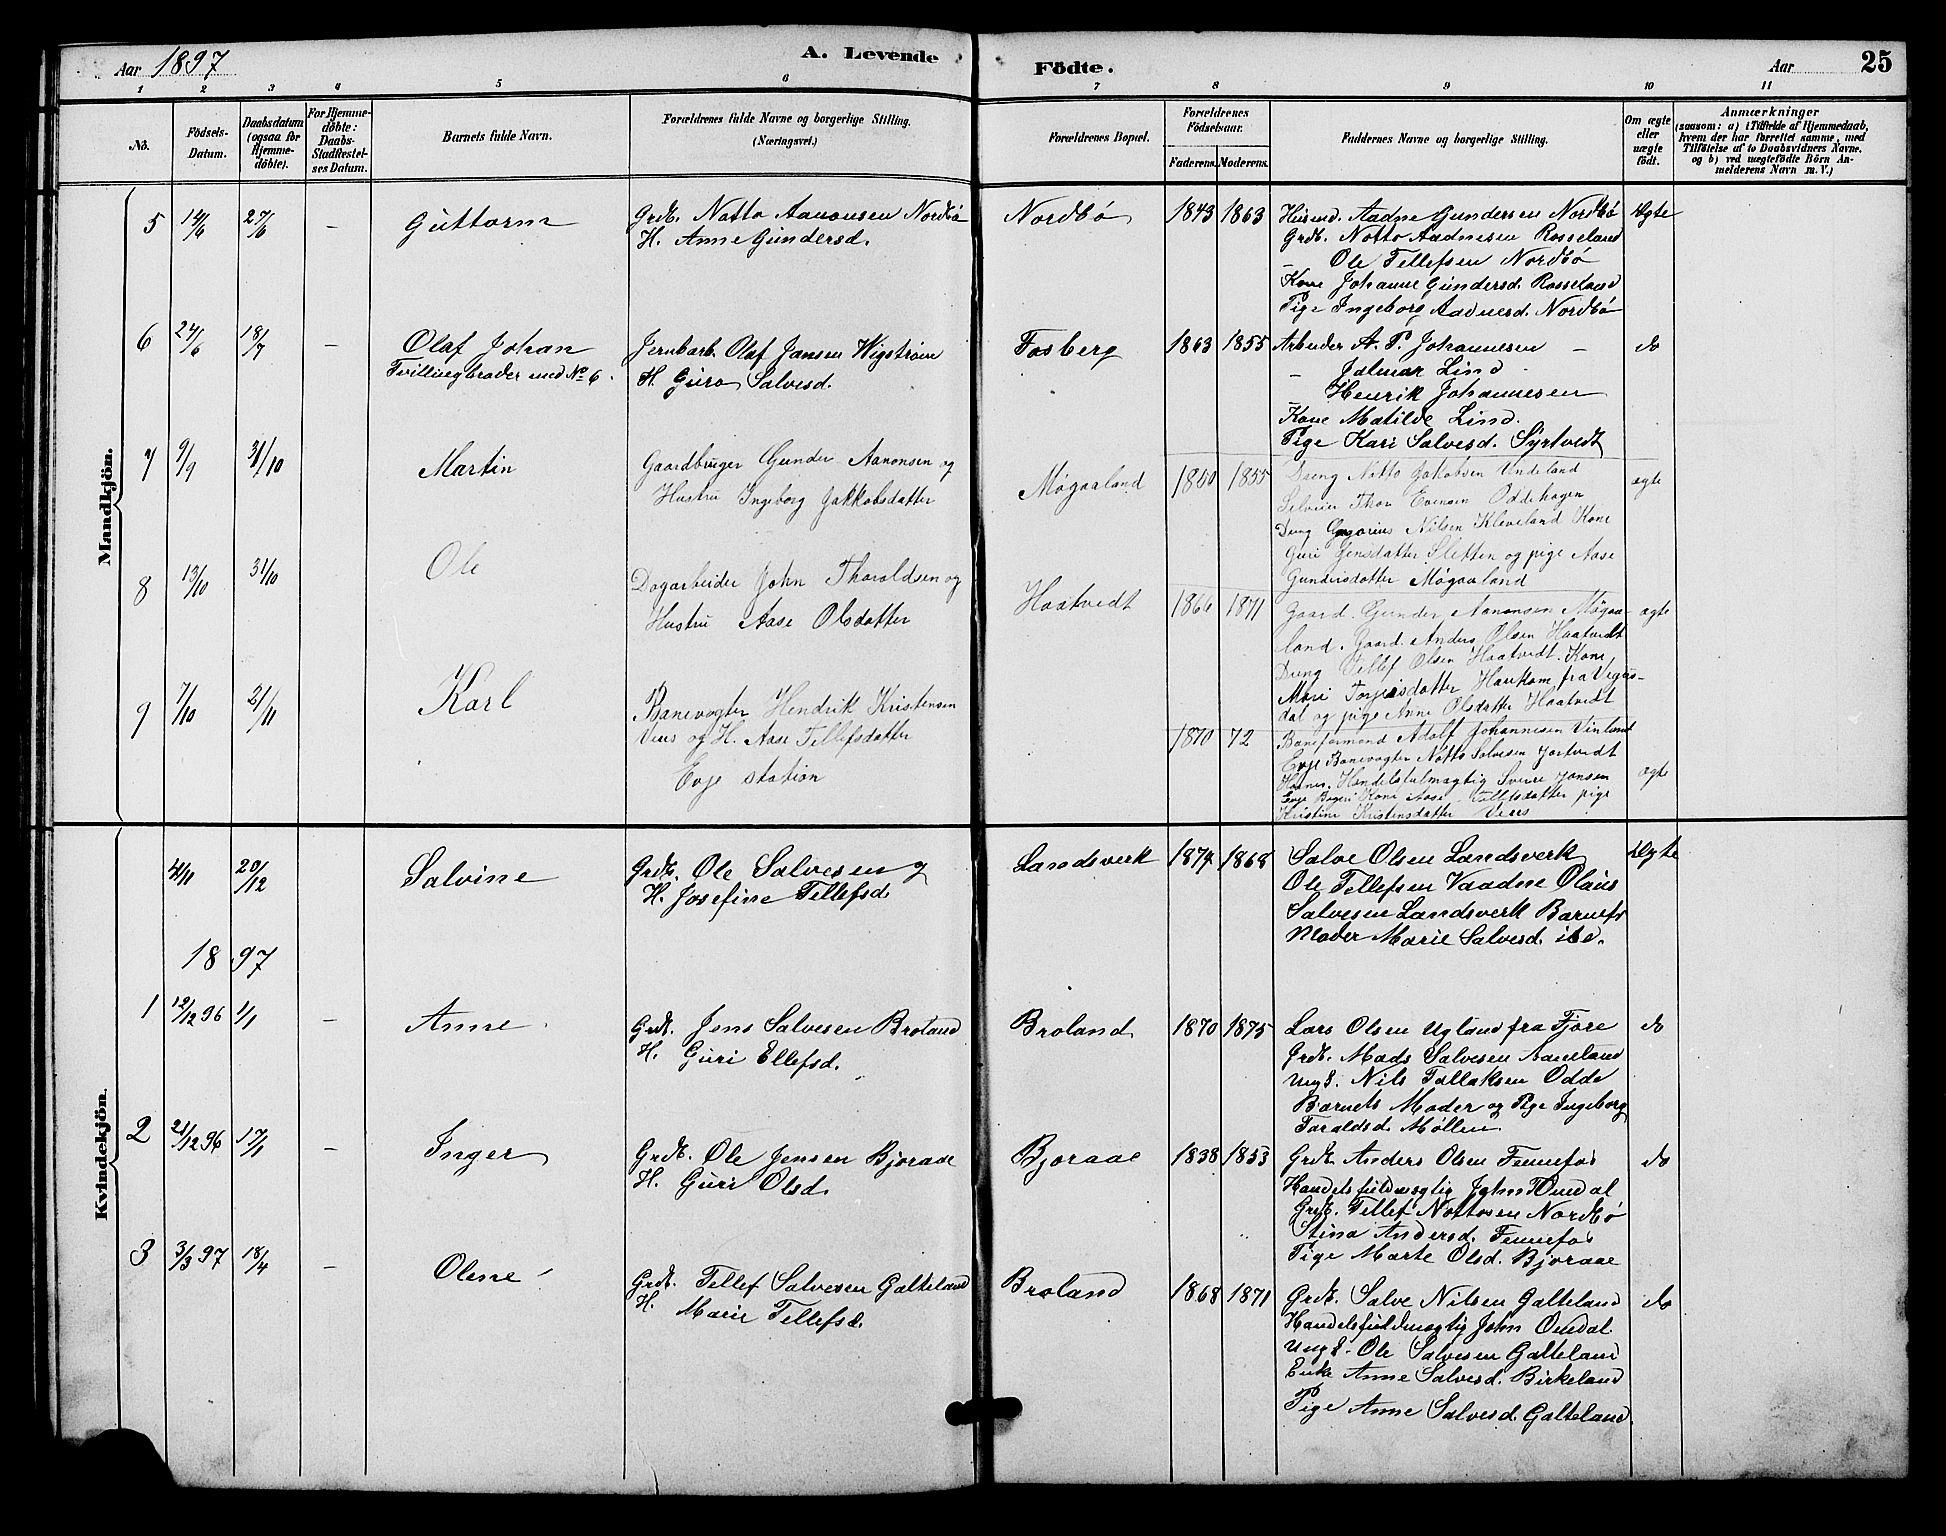 Aar 1897
A. Levende Födte.
Aar
25
1 2 3 4 5 6 7 8 9 10 11
No.
Födsels-Datum.
Daabsdatum (ogsaa for Hjemmedöbte).
For Hjemmedöbte: Daabs-Stadfestelses Datum.
Barnets fulde Navn.
Forældrenes fulde Navne og borgerlige Stilling. (Næringsvei.)
Forældrenes Bopæl.
Forældrenes Födselsaar.
Faderens. Moderens.
Faddernes Navne og borgerlige Stilling.
Om ægte eller uægte födt.
Anmærkninger
(saasom: a) i Tilfælde af Hjemmedaab,
hvem der har forrettet samme, med
Tilföielse af to Daabsvidners Navne,
og b) ved uægtefödte Börn An-
melderens Navn m. V.)
Mandkjön.
5 14/6 27/6 – Guttorm
Grdb. Notto Aanonsen Nordbö
H. Anne Gundersd.
Nordbö 1843 1863
Husmd. Aadne Gundersen Nordbö
Grdb. Notto Aadnesen Rosseland
– Ole Tellefsen Nordbö
Kone Johanne Gundersd. Rosseland
Pige Ingeborg Aadnesd. Nordbö
Ægte
6 24/6 18/7 – Olaf Johan
Tvillingbroder med No 6.
Jernbarb. Olaf Jansen Wigström
H. Guro Salvesd.
Fosberg 1863 1855
Arbeider A. P. Johannesen –
– Jalmar Lind
Henrik Johannesen
Kone Matilde Lind.
Pige Kari Salvesd. Syrtvedt
do
7 9/9 31/10 Martin
Gaardbruger Gunder Aanonsen og
Hustru Ingeborg Jakkobsdatter
Møgaaland 1850 1855
Dreng Notto Jakobsen Undeland
Selveier Thor Evensen Oddehagen
Dreng Gregorius Nilsen Kleveland Kone
Guri Jensdatter Sletten og pige Aase
Gundersdatter Møgaaland
ægte
8 13/10 31/10 Ole
Dagarbeider John Tharaldsen og
Hustru Aase Olsdatter
Haatvedt 1866 1871
Gaard. Gunder Aanonsen Møgaa-
land. Gaard. Anders Olsen Haatvedt
Dreng Tellef Olsen Haatvedt. Kone
Mari Torjeisdatter Haukom fra Vegus-
dal og pige Anne Olsdatter Haatvedt
ægte
9 7/10 21/11 Karl
Banevogter Hendrik Kristensen
og H. Aase Tellefsdatter
Evje station
1870 72
Baneformand Adolf Johannesen
Evje Banevogter Notto Salvesen
Hornes. Handelsfulmægtig Jonsen
Evje Kone Aase Tellefsdatter pige
Kristine Kristensdatter
ægte
Kvindekjön.
4/11 20/12 Salvine
Grdb. Ole Salvesen og
H. Josefine Tellefsd.
Landsverk 1874 1868
Salve Olsen Landsverk
Ole Tellefsen Vaadne Olaus
Salvesen Landsverk Barnets
Moder Marie Salvesd. ibd.
Ægte
1897
1 12/12 96 1/1 – Anne
Grdb. Jens Salvesen Broland
H. Guri Ellefsd.
Broland 1870 1875
Lars Olsen Ugland fra Fjære
Grdb. Mads Salvesen Aaneland
Ungk. Nils Tallaksen Odde
Barnets Moder og Pige Ingeborg
Taraldsd. Møllen.
do
2 21/12 96 17/1 – Inger
Grdb. Ole Jensen Bjoraae
H. Guri Olsd.
Bjoraae 1838 1853
Grdb. Anders Olsen Fennefos
Handelsfuldmægtig John Omdal
Grdb. Tellef Nottosen Nordbø
Stina Andersd. Fennefos
Pige Marte Olsd. Bjoraae
do
3 3/3 97 18/4 – Olene
Grdb. Tellef Salvesen Galteland
H. Marie Tellefsd.
Broland 1868 1871
Grdb. Salve Nilsen Galteland
Handelsfuldmægtig John Omdal.
Ungk. Ole Salvesen Galteland
Enke Anne Salvesd. Birkeland
Pige Anne Salvesd. Galteland.
do